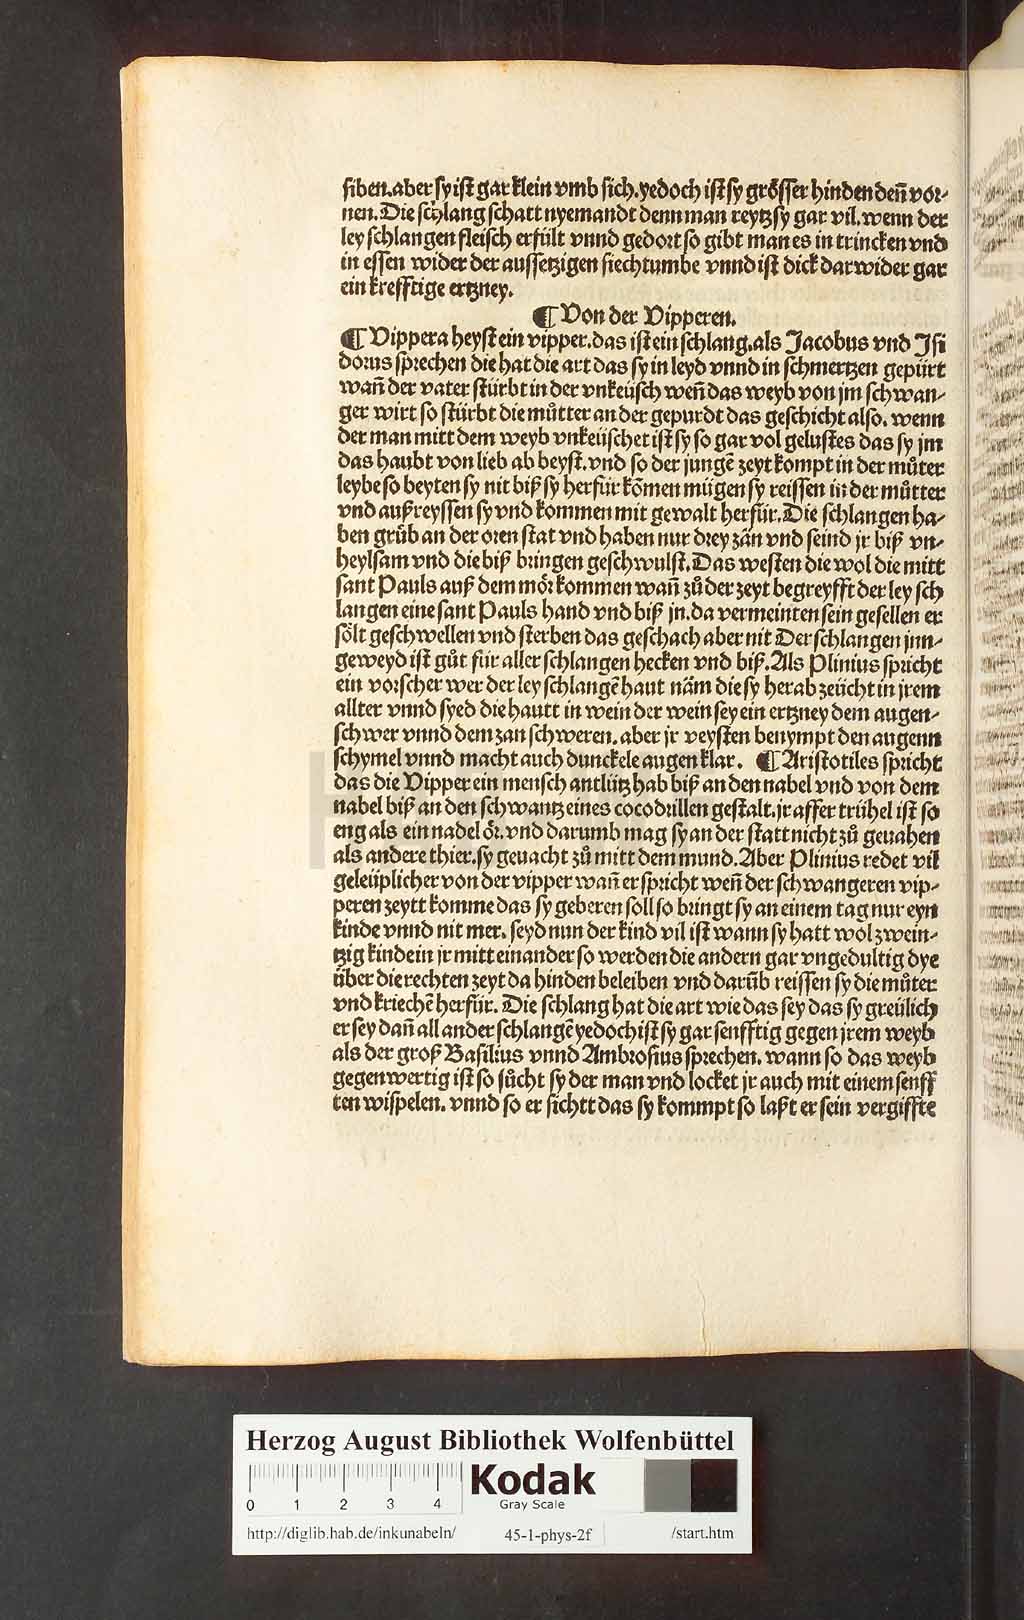 siben.aber sy ist gar klein vmb sich.yedoch ist sy grösser hinden deñ vor-
nen.Die schlang schatt nyemandt denn man reytz sy gar vil.wenn der
ley schlangen fleisch erfült vnnd gedort so gibt man es in trincken vnd
in essen wider der aussetzigen siechtumbe vnnd ist dick darwider gar
ein krefftige ertzney.
¶ Von der Vipperen.
¶ Vippera heyst ein vipper.das ist ein schlang.als Jacobus vnd Jsi
dorus sprechen die hat die art das sy in leyd vnnd in schmertzen gepürt
wañ der vater stürbt in der vnkeüsch weñ das weyb von jm schwan-
ger wirt so stürbt die můtter an der gepurdt das geschicht also. wenn
der man mitt dem weyb vnkeüschet ist sy so gar vol gelustes das sy jm
das haubt von lieb ab beyst.vnd so der jungē zeyt kompt in der můter
leybe so beyten sy nit biß sy herfür kōmen mügen sy reissen in der můtter
vnd auß reyssen sy vnd kommen mit gewalt herfür.Die schlangen ha-
ben grůb an der oren stat vnd haben nur drey zän vnd seind jr biß vn-
heylsam vnd die biß bringen geschwulst.Das westen die wol die mitt
sant Pauls auß dem mör kommen wañ zů der zeyt begreyfft der ley sch
langen eine sant Pauls hand vnd biß jn.da vermeinten sein gesellen er
sölt geschwellen vnd sterben das geschach aber nit Der schlangen jnn-
geweyd ist gůt für aller schlangen hecken vnd biß.Als Plinius spricht
ein vorscher wer der ley schlangē haut näm die sy herab zeücht in jrem
allter vnnd syed die hautt in wein der wein sey ein ertzney dem augen-
schwer vnnd dem zan schweren.aber jr veysten benympt den augenn
schymel vnnd macht auch dunckele augen klar. ¶ Aristotiles spricht
das die Vipper ein mensch antlütz hab biß an den nabel vnd von dem
nabel biß an den schwantz eines cocodrillen gestalt.jr affter trühel ist so
eng als ein nadel ör.vnd darumb mag sy an der statt nicht zů geuahen
als andere thier.sy geuacht zů mitt dem mund.Aber Plinius redet vil
geleüplicher von der vipper wañ er spricht weñ der schwangeren vip-
peren zeytt komme das sy geberen soll so bringt sy an einem tag nur eyn
kinde vnnd nit mer. seyd nun der kind vil ist wann sy hatt wol zwein-
tzig kind ein jr mitt einander so werden die andern gar vngedultig dye
über die rechten zeyt da hinden beleiben vnd darūb reissen sy die můter
vnd kriechē herfür. Die schlang hat die art wie das sey das sy greülich
er sey dañ all ander schlangē yedoch ist sy gar senfftig gegen jrem weyb
als der groß Basilius vnnd Ambrosius sprechen. wann so das weyb
gegenwertig ist so sůcht sy der man vnd locket jr auch mit einem senff
ten wispelen. vnnd so er sichtt das sy kommpt so laßt er sein vergiffte
Herzog August Bibliothek Wolfenbüttel
0 1 2 3 4 Kodak
Gray Scale
http://diglib.hab.de/inkunabeln/ 45-1-phys-2f /start.htm